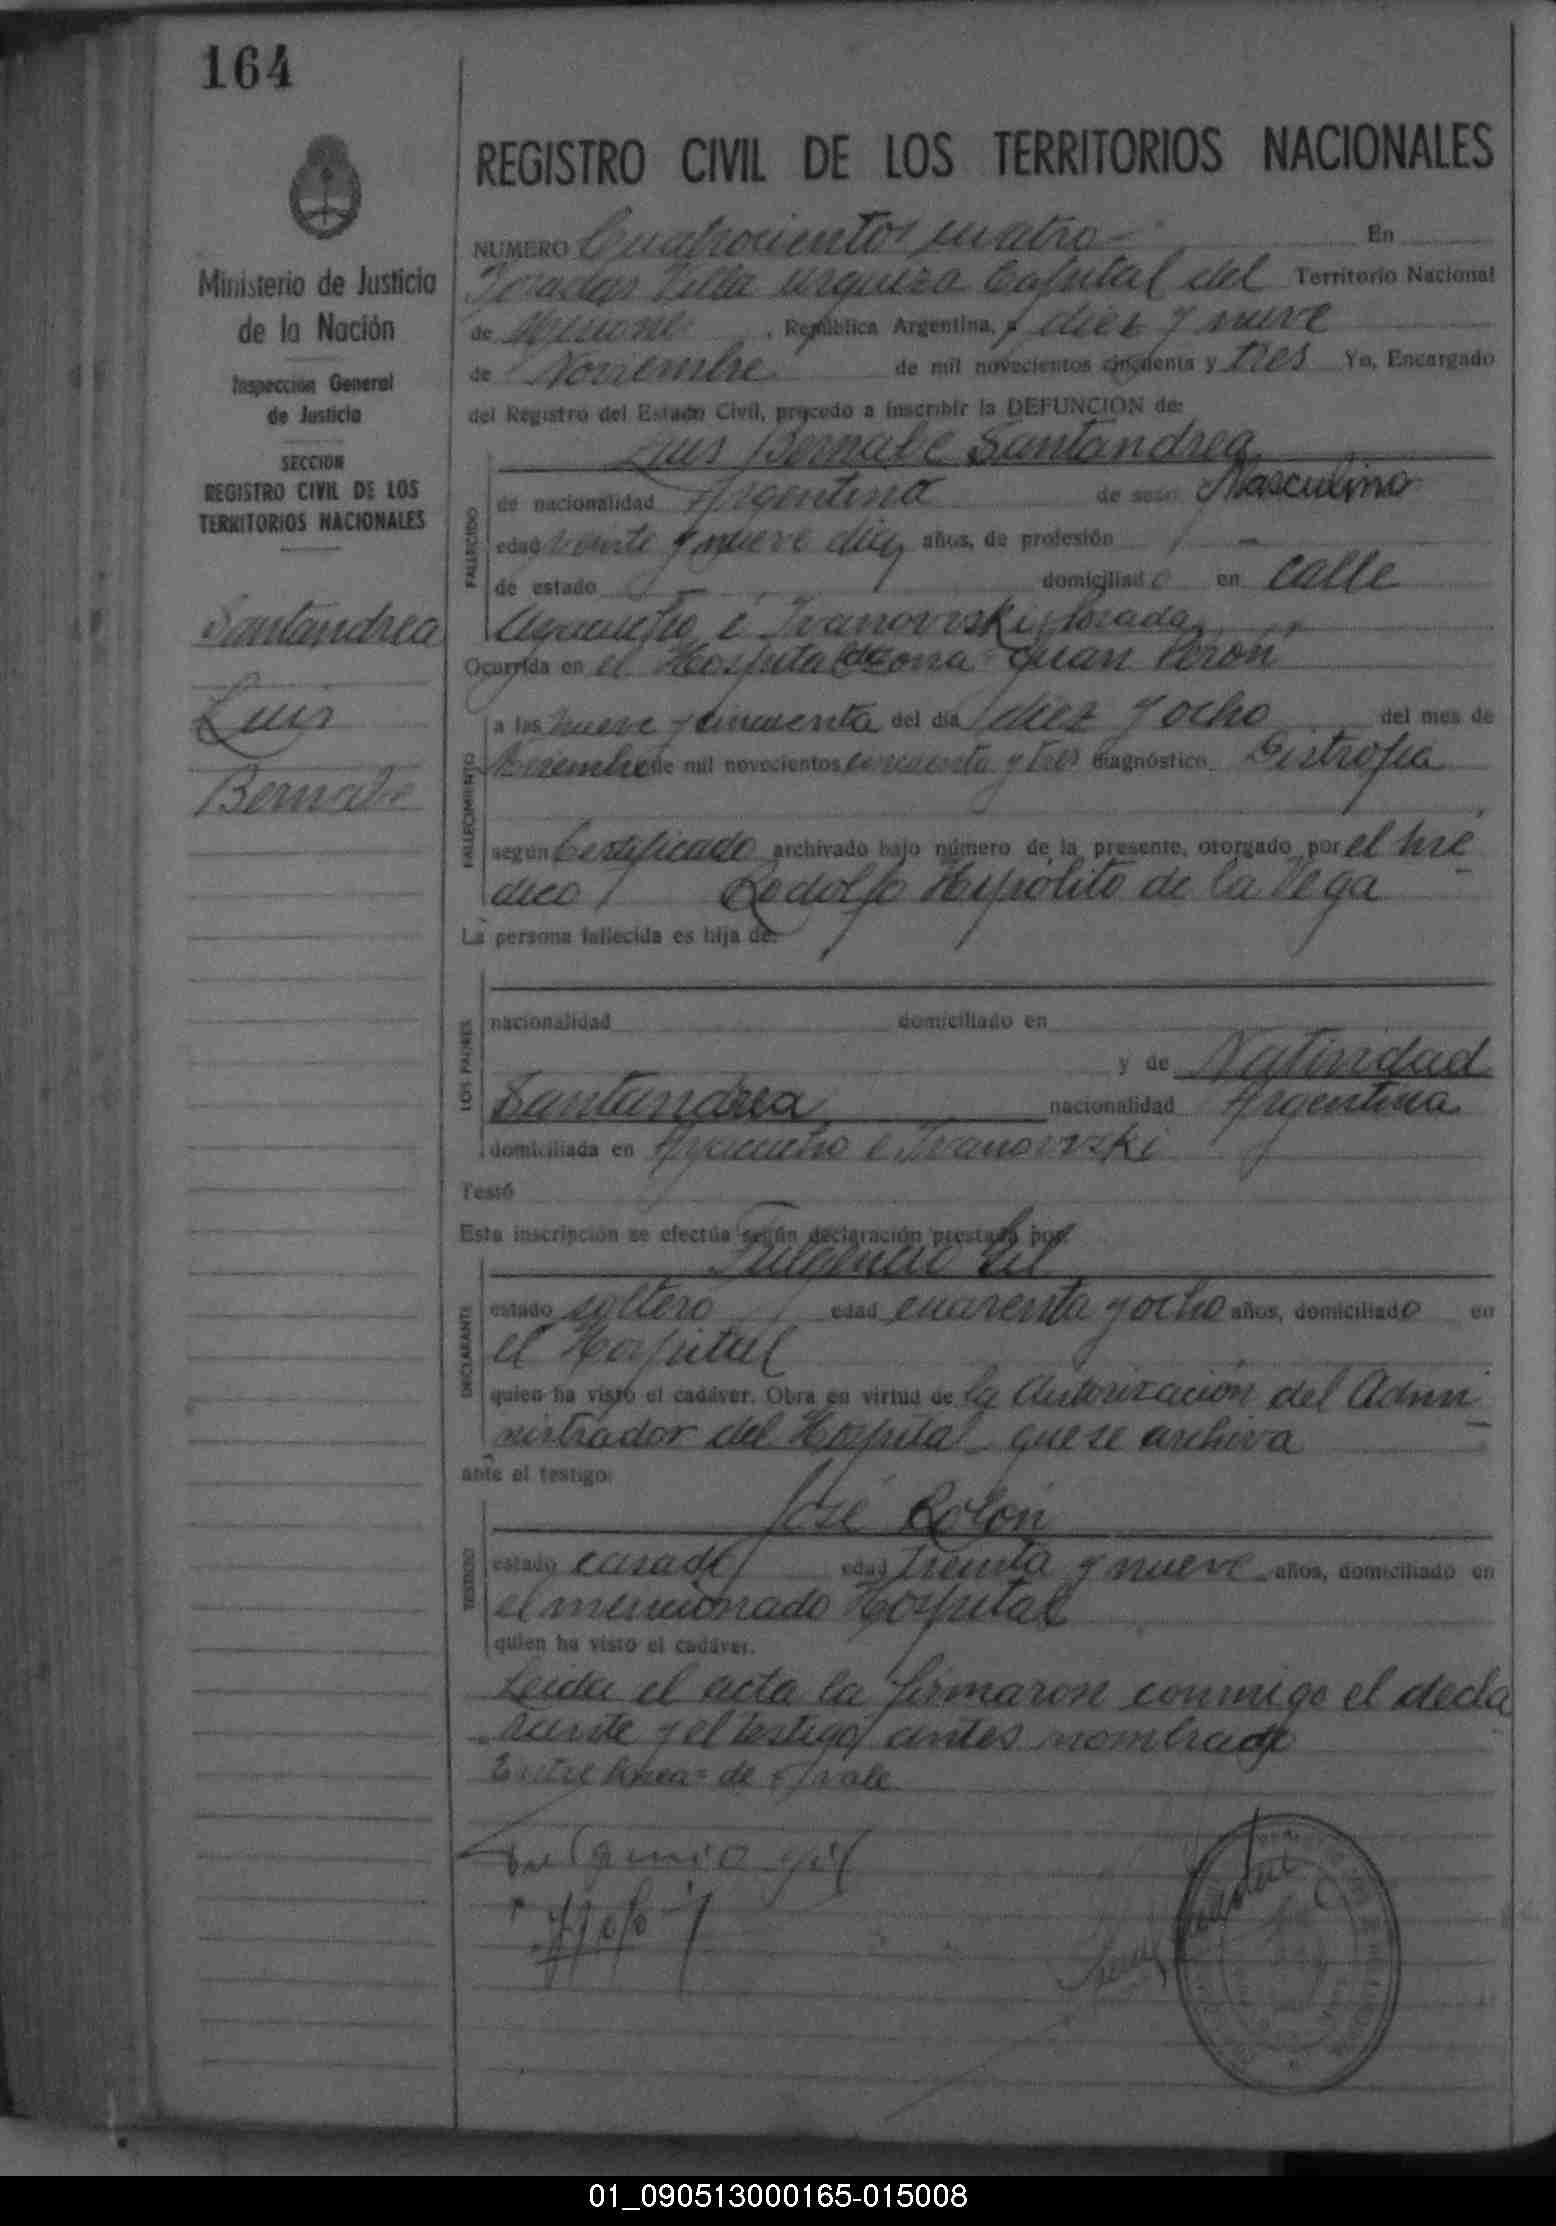 164
REGISTRO CIVIL DE LOS TERRITORIOS NACIONALES
Ministerio de Justicia
de la Nación
Inspección General
de Justicia
SECCION
REGISTRO CIVIL DE LOS
TERRITORIOS NACIONALES
Santandrea
Luis
Bernabe
NUMERO Cuatrocientos cuatro En
Posadas Villa Urquiza Capital del Territorio Nacional
de Misiones, República Argentina, a diez y nueve
de Noviembre de mil novecientos cincuenta y tres Yo, Encargado
del Registro del Estado Civil, procedo a inscribir la DEFUNCION de:
Luis Bernabe Santandrea
FALLECIDO
de nacionalidad Argentina de sexo Masculino
edad veinte y nueve días años, de profesión -
de estado - domiciliado en calle
Ayacucho é Ivanovski Posadas
Ocurrida en el Hospital de zona "Juan Perón"
FALLECIMIENTO
a las nueve y cincuenta del día diez y ocho del mes de
Noviembre de mil novecientos cincuenta y tres diagnóstico Distrofia
según Certificado archivado bajo número de la presente, otorgado por el mé
dico Rodolfo Hipólito de la Vega
La persona fallecida es hija de:
LOS PADRES
nacionalidad domiciliado en
y de Natividad
Santandrea nacionalidad Argentina
domiciliada en Ayacucho e Ivanovski
Testó
Esta inscripción se efectúa según declaración prestada por:
Fulgencio Gil
DECLARANTE
estado soltero edad cuarenta y ocho años, domiciliado en
el Hospital
quien ha visto el cadáver. Obra en virtud de la Autorización del Admi
nistrador del Hospital que se archiva
ante el testigo:
José Rolón
TESTIGO
estado casado edad treinta y nueve años, domiciliado en
el mencionado Hospital
quien ha visto el cadáver.
Leida el acta la firmaron conmigo el decla
rante y el testigo antes nombrado
Entre linea = de = vale
Fulgencio Gil
01_090513000165-015008